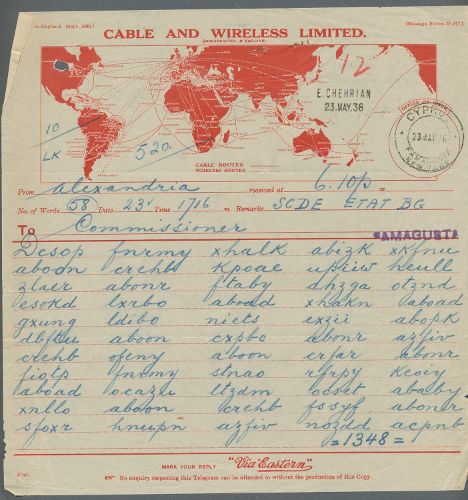 (Printed in England. Sept. 1935.)
CABLE AND WIRELESS LIMITED.
(INCORPORATED IN ENGLAND)
12
E. CHEHRIAN
23. MAY. 36
CYPRUS
23 MAY 36
10
LK
520.
CABLE ROUTES
WIRELESS ROUTES
From Alexandria received at 6.10p m
No. of Words 58 Date 23 Time 1716 m. Remarks SCDE ETAT BG
To Commissioner FAMAGUSTA
Dcsop fnrmy xhalk abizk xxfnu
aboon crchb kpoae upriw heull
zlaer abonr ftaby dhzga otznd
esokd lxrbo aboad xhakn aboad
gxung ldibo niets exzii abopk
aboon cxpbc abonr azfiv
crchb ofeny aboon crfar abonr
fiotp fnrmy slnao rfrpy keoiy
aboad ocazu ltzdm ocset ababy
xnllo aboon crchb fssyf abonr
sfoxr hnupn azfiv nozdd acpnb
=1348=
MARK YOUR REPLY "Via Eastern"
No enquiry respecting this Telegram can be attended to without the production of this Copy.